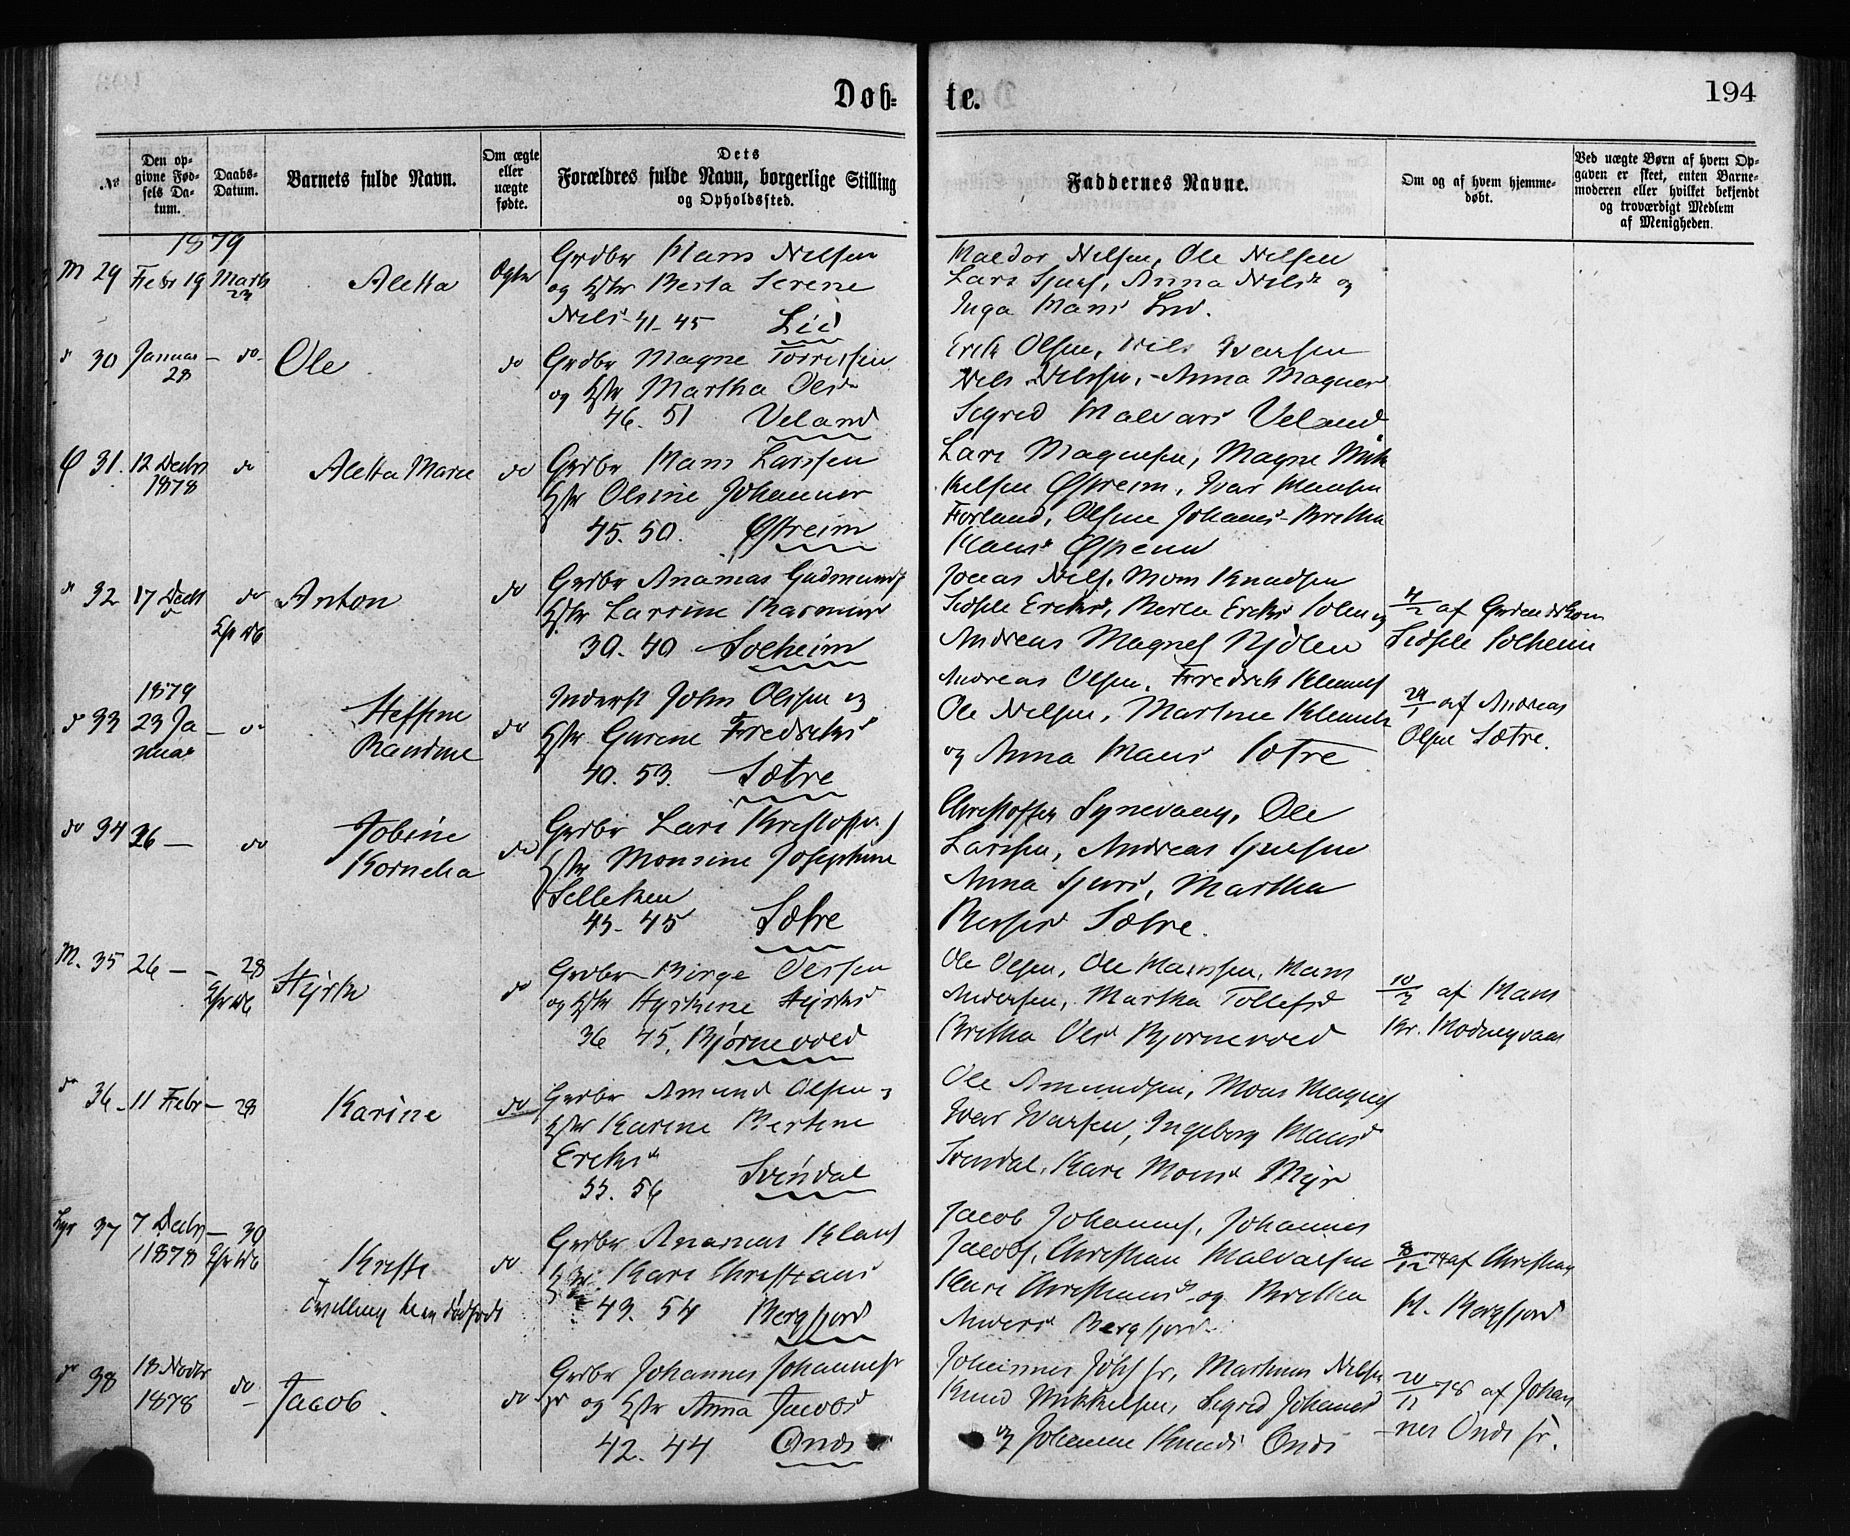 Døb=
te.
194
No
Den op-
givne Fød-
sels Da-
tum.
Daabs-
Datum.
Barnets fulde Navn.
Om ægte
eller
uægte
fødte.
Dets
Forældres fulde Navn, borgerlige Stilling
og Opholdssted.
Faddernes Navne.
Om og af hvem hjemme-
døbt.
Ved uægte Børn af hvem Op-
gaven er skeet, enten Barne-
moderen eller hvilket bekjendt
og troværdigt Medlem
af Menigheden.
1879
M 29 Febr 19 Marts
23
Aletta
Ægte
Grdbr Hans Nilsen
og Hstr Berta Serene
Nils 41-45 Lid
Haldor Nilsen, Ole Nilsen
Lars Sjurs, Anna Nilsd og
Inga Hans Lid.
do 30 Januar - do-
28
Ole
do
Grdbr Magne Torrissen
og Hstr Martha Olsd
46. 51 Veland
Erik Olsen, Nils Ivarsen
Nils Nilssen, Anna Magnes
Sigred Halvars Veland
31. 12 Decbr do
1878
Aletta Marie
do
Grdbr Hans Larssen
Hstr Olsine Johannes
45. 50. Østreim
Lars Magnesen, Magne Mik
kelsen Østreim, Ivar Hansen
Forland, Olsine Johans- Britha
Hans Østreim
do 32 17 Decbr do
Anton
do
Grdbr Ananias Gudmunds
Hstr Larsine Rasmus
39. 40 Solheim
Jonas Nils. Mons Knudsen
Sidsele Eriks, Berta Eriks Solheim og
Andreas Magnes Njølen
4/2 af Grdm
Sidsele Solheim
1879
do 33 23 Ja - do
nuar
Steffine
Randine
do
Inderst John Olssen og
Hstr Gurine Fredriks
40. 53. Sætre
Andreas Olsen, Fredrik Klaus
Ole Nilsen, Martine Klaus
og Anna Hans Sætre
24/1 af Andreas
Olsen Sætre.
do 34 26 - do
Jobine
Kornelia
do
Grdbr Lars Kristoffers
Hstr Monsine Josephine
Selleken
43- 45 Sætre
Christoffer Synnevaag, Ole
Larssen, Andreas Sjursen
Anna Sjurs, Martha
Sætre.
M. 35 26 - - 28
Styrk
do
Grdbr Birge Olssen
og Hstr Styrkine Styrks
36 45. Bjørnevoled
Ole Olsen, Ole Hanssen, Hans
Andersen, Martha Tollefsd
Britha Olsd Bjørnevoled
10/2 af Hans
Kr.
do 36. 11 Febr - 28
Karine
do
Grdbr Amund Olsen og
Hstr Karine Bertine
Eriksd
55. 56 Svendal
Ole Amundsen, Mons Magnes
Ivar Ivarsen, Ingeborg Hansd
Svendal, Kari Monsd Myr
37 7 Decbr - 30
1878
Kristi
Tvilling
do
Grdbr Ananias Klaus
Hstr Kari Christians
43. 54 Bergfjord
Jacob Johannes, Johannes
Jacobs, Christian Halvarsen
Kari Christians og Britha
Anders Bergfjord.
8/12 78 af Christian
H. Bergfjord
do 38 18 Novbr do
1878 -
Jacob.
do
Grdbr Johannes Johannes
jr og Hstr Anna Jacobs
42. 44 Onds
Johannes Johs sr, Martinus Nilsen
Knud Mikkelsen, Sigred Johanes
og Johanne Knuds Onds
20/11 78 af Johan
nes Onds sr.